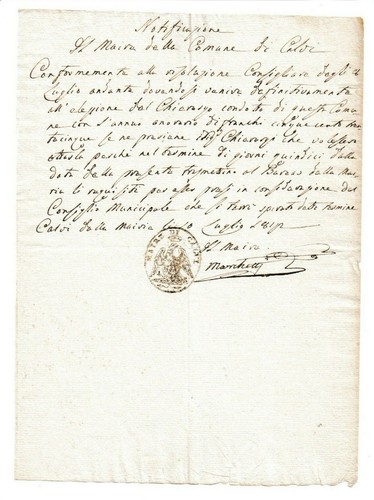 Notificazione
Il Maire della Comune di Calvi
Conformemente alla risoluzione Consigliare degli
Luglio andante dovendosi venire definitivamente
all'elezione del Chirurgo condotto di questa Comu
ne con l'annuo onorario di franchi cinquecento tren
tacinque se ne prevengono Chirurghi che volessero
perchè nel termine di giorni quindici dalla
data della presente trasmettino al Bureau della Mai
ria li requisiti per esser presi in considerazione dal
Consiglio Municipale che si terrà spirato detto termine
Calvi dalla Mairia li Luglio 1812
Il Maire
Marchetti
MAIRE DI CALVI